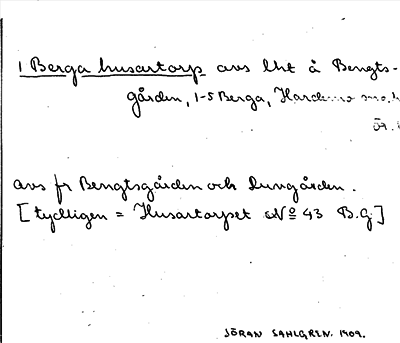 1 Berga husartorp avs lht å Bengts-
gården, 1-5 Berga,
avs fr Bengtsgården och Dungården.
[tydligen = Husartorpet No 43 B.G]
JÖRAN SAHLGREN. 1909.